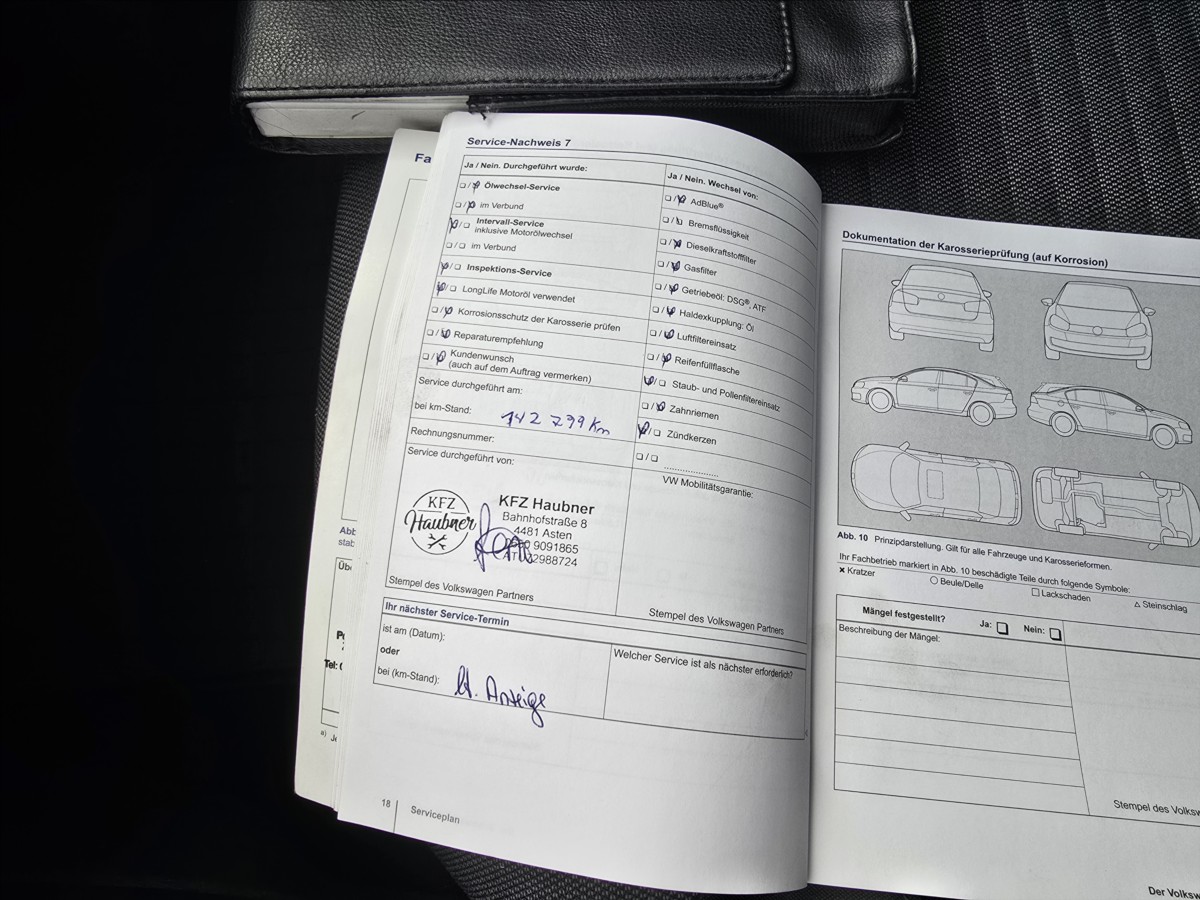 Fa
Service-Nachweis 7
Ja / Nein. Durchgeführt wurde:
Ölwechsel-Service
im Verbund
Intervall-Service
inklusive Motorölwechsel
im Verbund
Inspektions-Service
LongLife Motoröl verwendet
Korrosionsschutz der Karosserie prüfen
Reparaturempfehlung
Kundenwunsch
(auch auf dem Auftrag vermerken)
Service durchgeführt am:
bei km-Stand: 142 799 km
Rechnungsnummer:
Service durchgeführt von:
KFZ
Haubner
KFZ Haubner
Bahnhofstraße 8
4481 Asten
9091865
32988724
Stempel des Volkswagen Partners
Ja / Nein. Wechsel von:
AdBlue®
Bremsflüssigkeit
Dieselkraftstofffilter
Gasfilter
Getriebeöl: DSG®, ATF
Haldexkupplung: Öl
Luftfiltereinsatz
Reifenfüllflasche
Staub- und Pollenfiltereinsatz
Zahnriemen
Zündkerzen
VW Mobilitätsgarantie:
Stempel des Volkswagen Partners
Ihr nächster Service-Termin
ist am (Datum):
oder
bei (km-Stand): lt. Anzeige
Welcher Service ist als nächster erforderlich?
18
Serviceplan
Abb
stab
Übe
Tel:
a)
Dokumentation der Karosserieprüfung (auf Korrosion)
Abb. 10 Prinzipdarstellung. Gilt für alle Fahrzeuge und Karosserieformen.
Ihr Fachbetrieb markiert in Abb. 10 beschädigte Teile durch folgende Symbole:
× Kratzer
○ Beule/Delle
□ Lackschaden
△ Steinschlag
Mängel festgestellt? Ja: Nein:
Beschreibung der Mängel:
Stempel des Volksw
Der Volksw